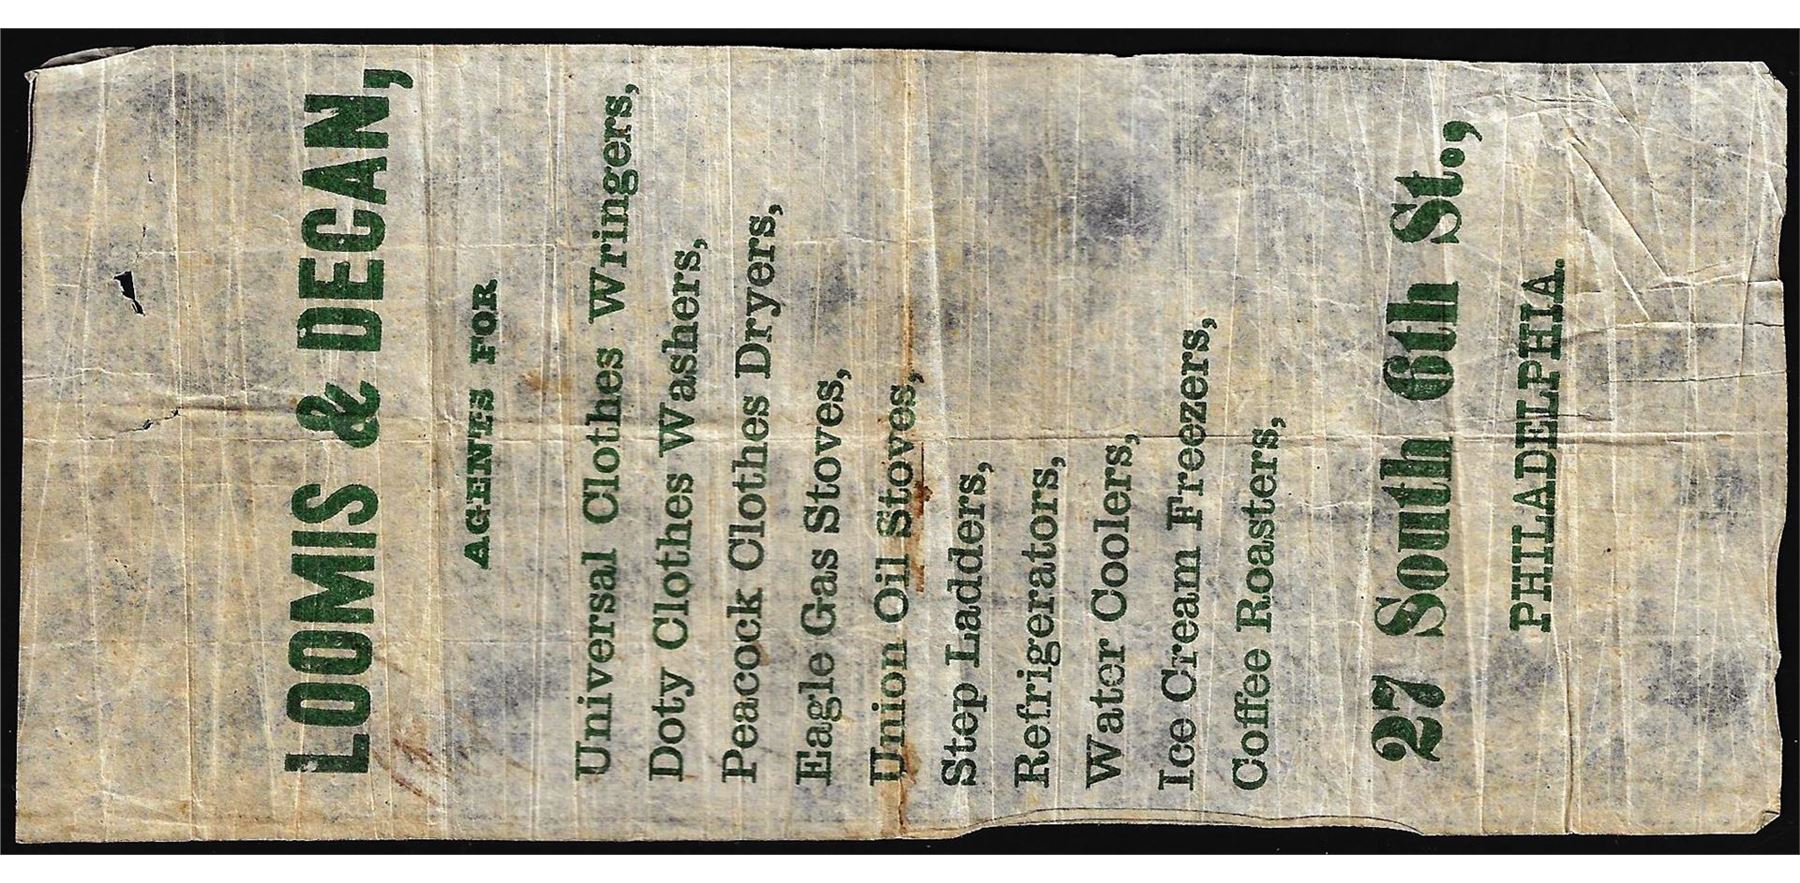 LOOMIS & DECAN,
AGENTS FOR
Universal Clothes Wringers,
Doty Clothes Washers,
Peacock Clothes Dryers,
Eagle Gas Stoves,
Union Oil Stoves,
Step Ladders,
Refrigerators,
Water Coolers,
Ice Cream Freezers,
Coffee Roasters,
27 South 6th St.,
PHILADELPHIA.